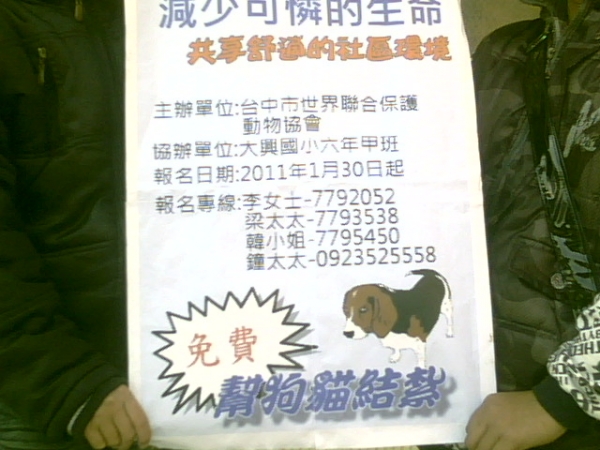 減少可憐的生命
共享舒適的社區環境
主辦單位:台中市世界聯合保護
動物協會
協辦單位:大興國小六年甲班
報名日期:2011年1月30日起
報名專線:李女士-7792052
梁太太-7793538
韓小姐-7795450
鐘太太-0923525558
免費
幫狗貓結紮